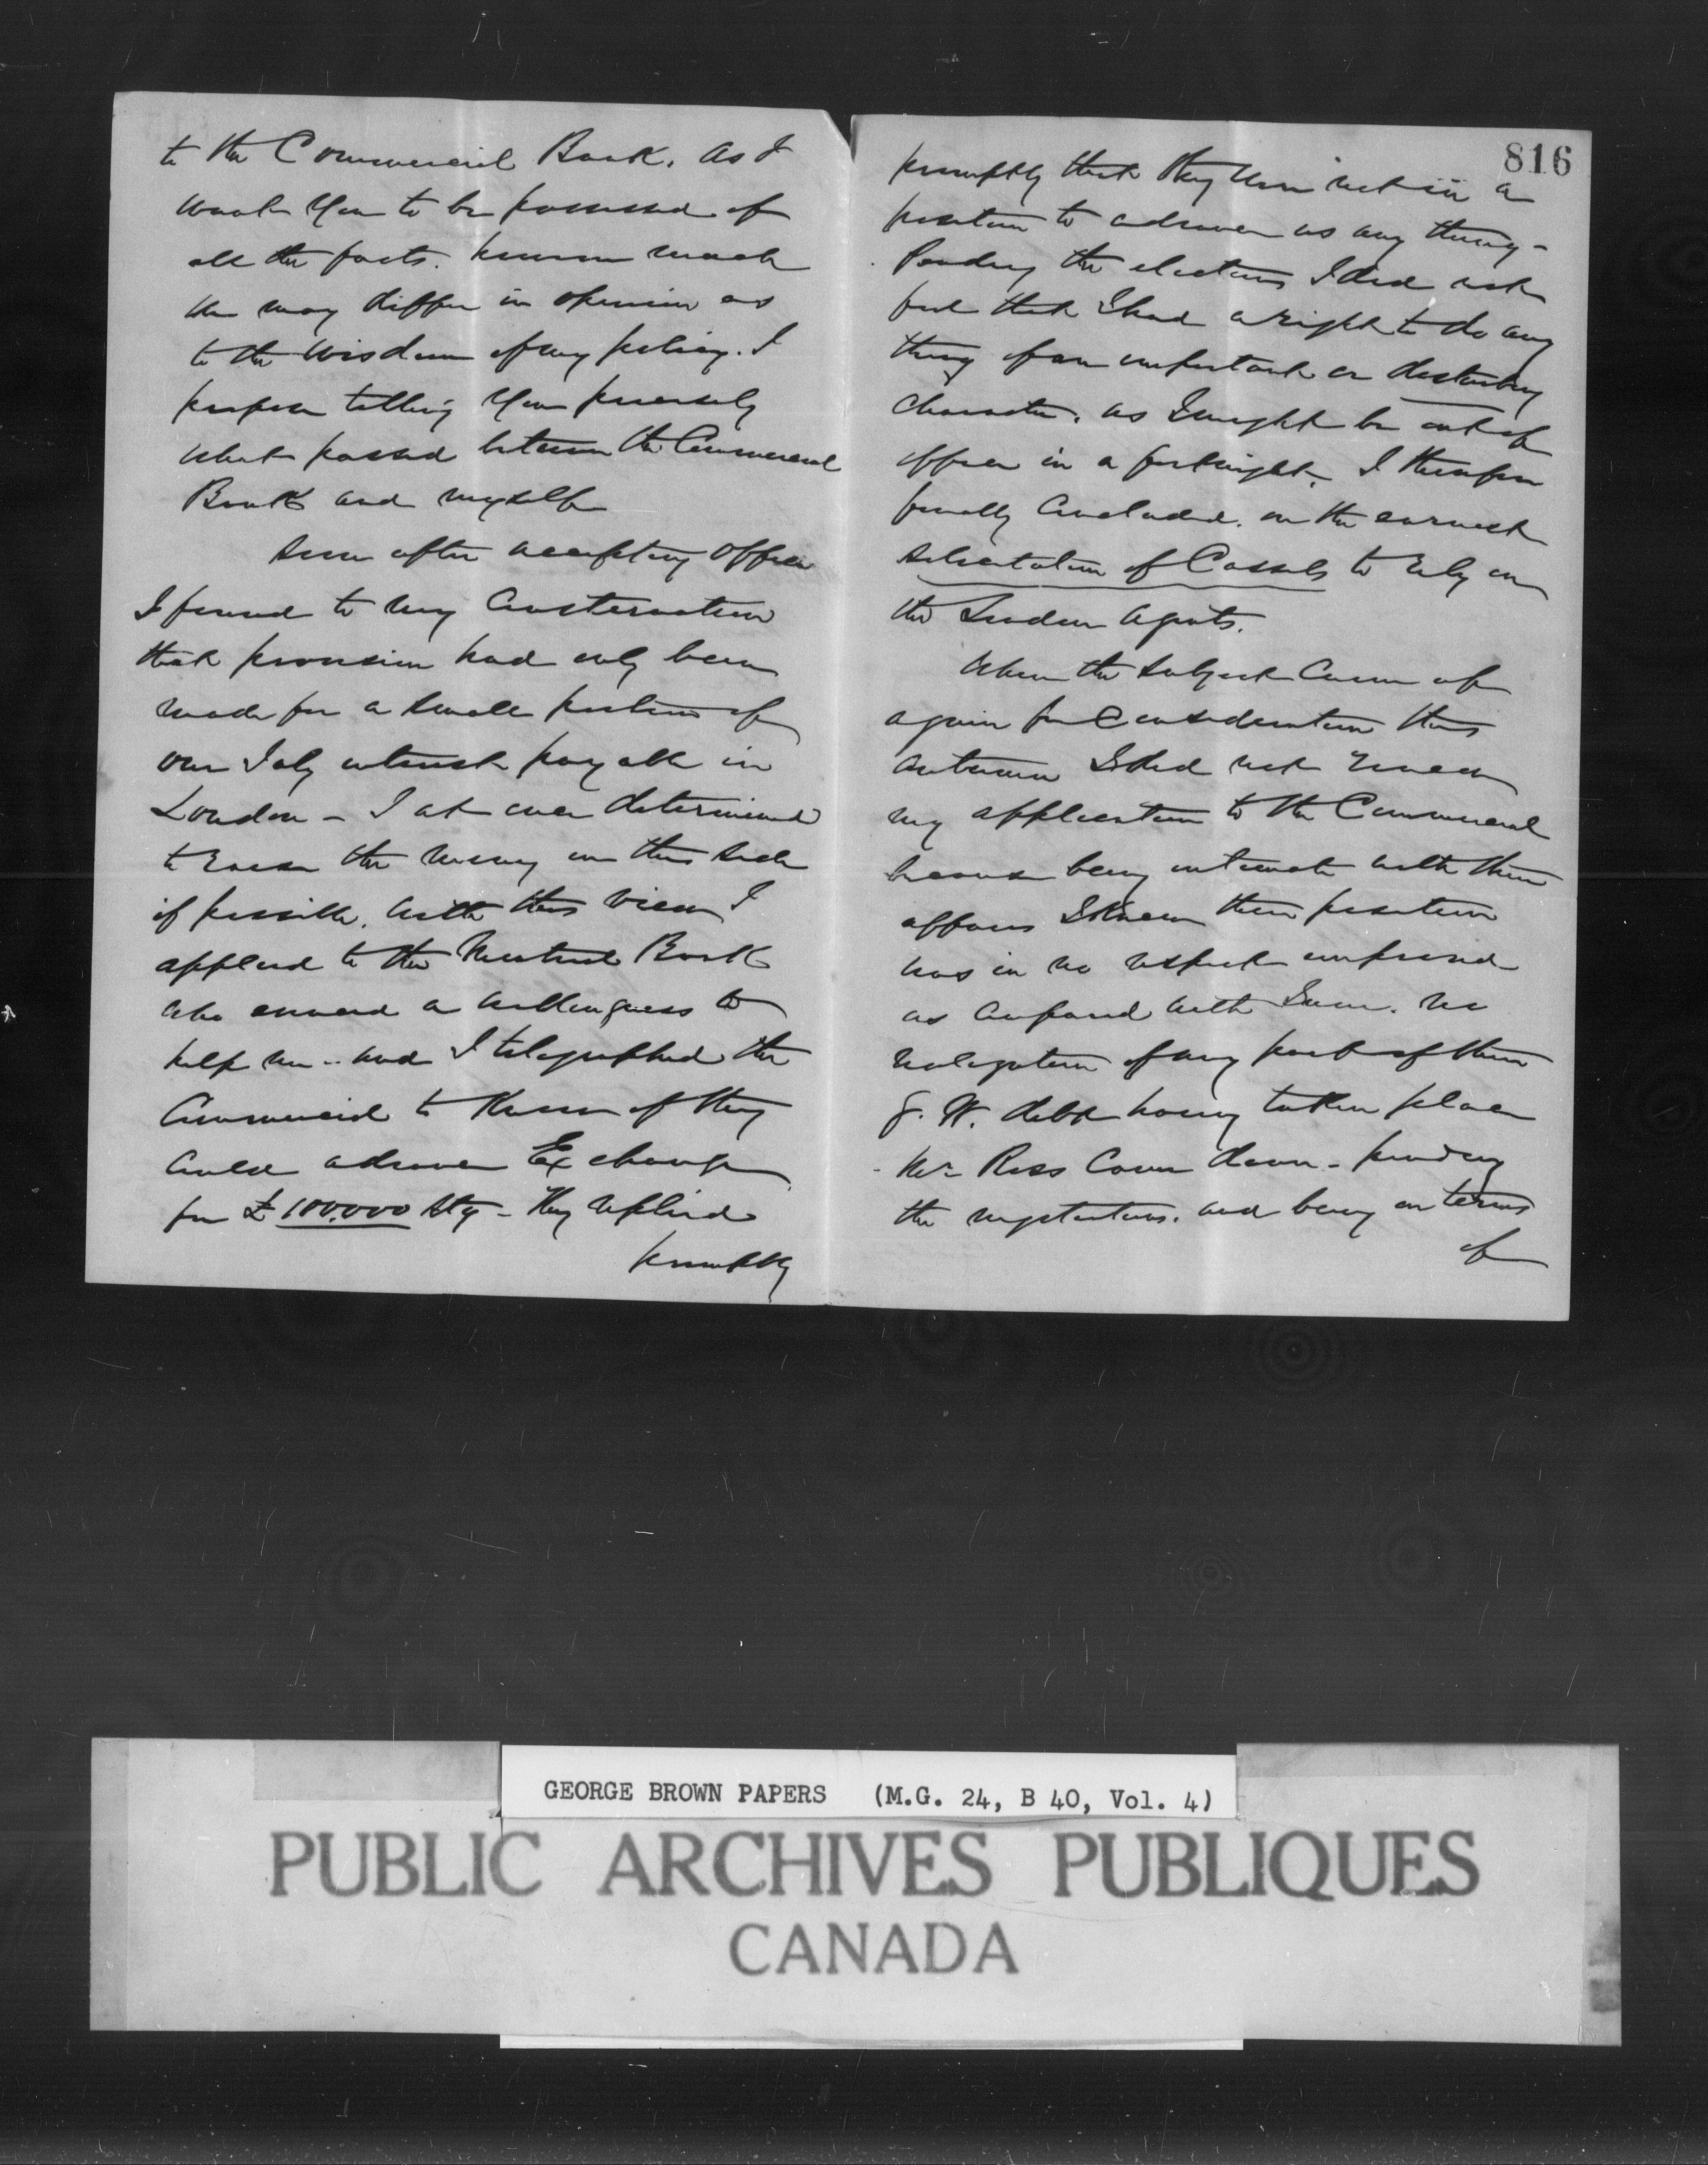 to the Commercial Bank. As I
want you to be possessed of
all the facts. however much
we may differ in opinion as
to the wisdom of my policy. I
propose telling you precisely
what passed between the Commercial
Bank and myself
Soon after accepting office
I found to my consternation
that provision had only been
made for a small portion of
our July interest payable in
London – I at once determined
to raise the money on this side
if possible. With this view I
applied to the Montreal Bank
who evinced a willingness to
help me – and I telegraphed the
Commercial to know if they
could advance Exchange
for £100,000 Stg – They replied
promptly
816
promptly that they were not in a
position to advance us any thing –
Pending the elections I did not
feel that I had a right to do any
thing of an important or disturbing
character. as I might be out of
office in a fortnight. I therefore
finally concluded. on the earnest
solicitation of Cassels to rely on
the London Agents.
When the subject came up
again for Consideration this
Autumn I did not renew
my application to the Commercial
because being intimate with their
affairs I knew their position
was in no respect improved
as compared with June. no
of any part of their
G. W. debt having taken place
Mr Ross came down – pending
the negotiations. and being on terms
of
GEORGE BROWN PAPERS (M.G. 24, B 40, Vol. 4)
PUBLIC ARCHIVES PUBLIQUES
CANADA